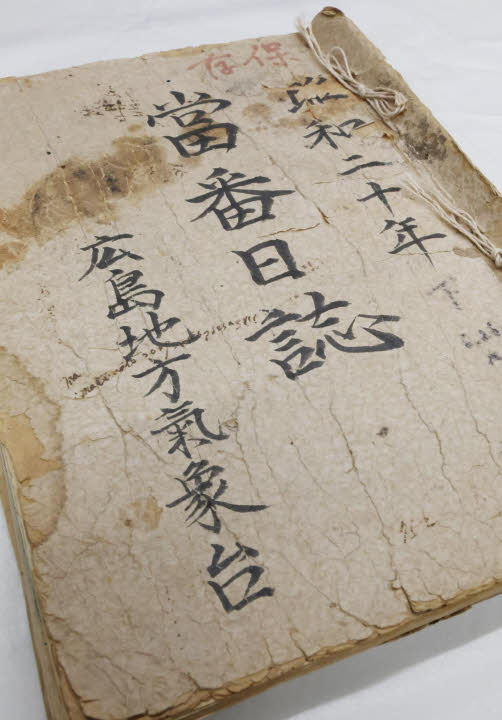 保存
昭和二十年
當番日誌
広島地方氣象台